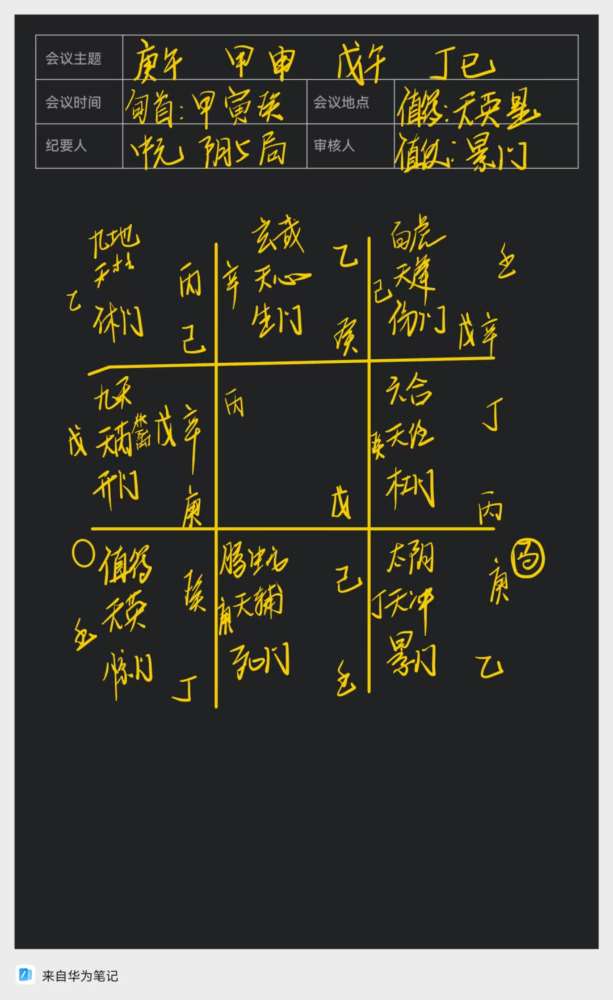 会议主题 庚午 甲申 戊午 丁巳
会议时间 旬首:甲寅癸 会议地点 值符:天英星
纪要人 中元 阴5局 审核人 值使:景门
九地 玄武 白虎
天柱 丙 辛 天心 乙 己 天蓬 壬
乙 休门 己 生门 癸 伤门 戊 辛
九天 丙 六合
戊 天芮 戊 辛 癸 天任 丁
开门 庚 戊 杜门 丙
○ 值符 癸 腾蛇 己 太阴 庚 马
壬 天英 庚 天辅 丁 天冲
惊门 丁 死门 壬 景门 乙
来自华为笔记